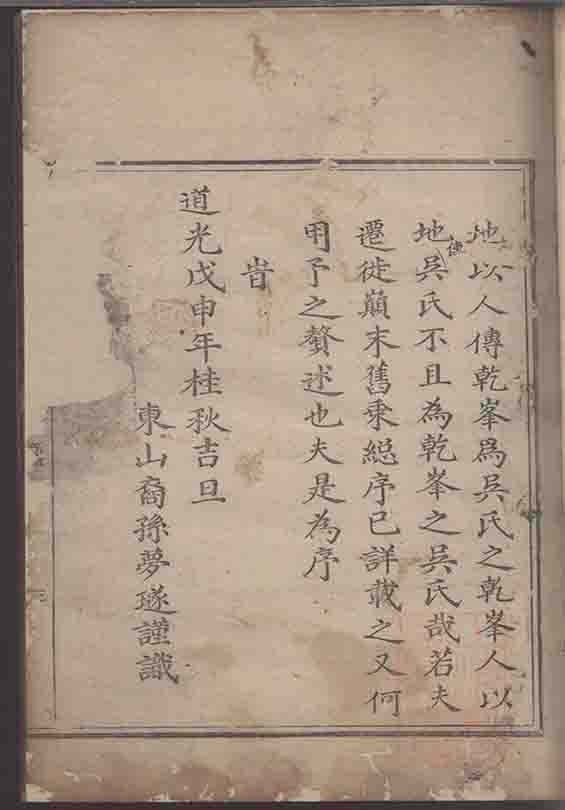 地以人傳乾峯爲吳氏之乾峯人以
地傳吳氏不且為乾峯之吳氏哉若夫
遷徙巔末舊乘縂序已詳載之又何
用予之贅述也夫是為序
旹
道光戊申年桂秋吉旦
東山裔孫夢璲謹識